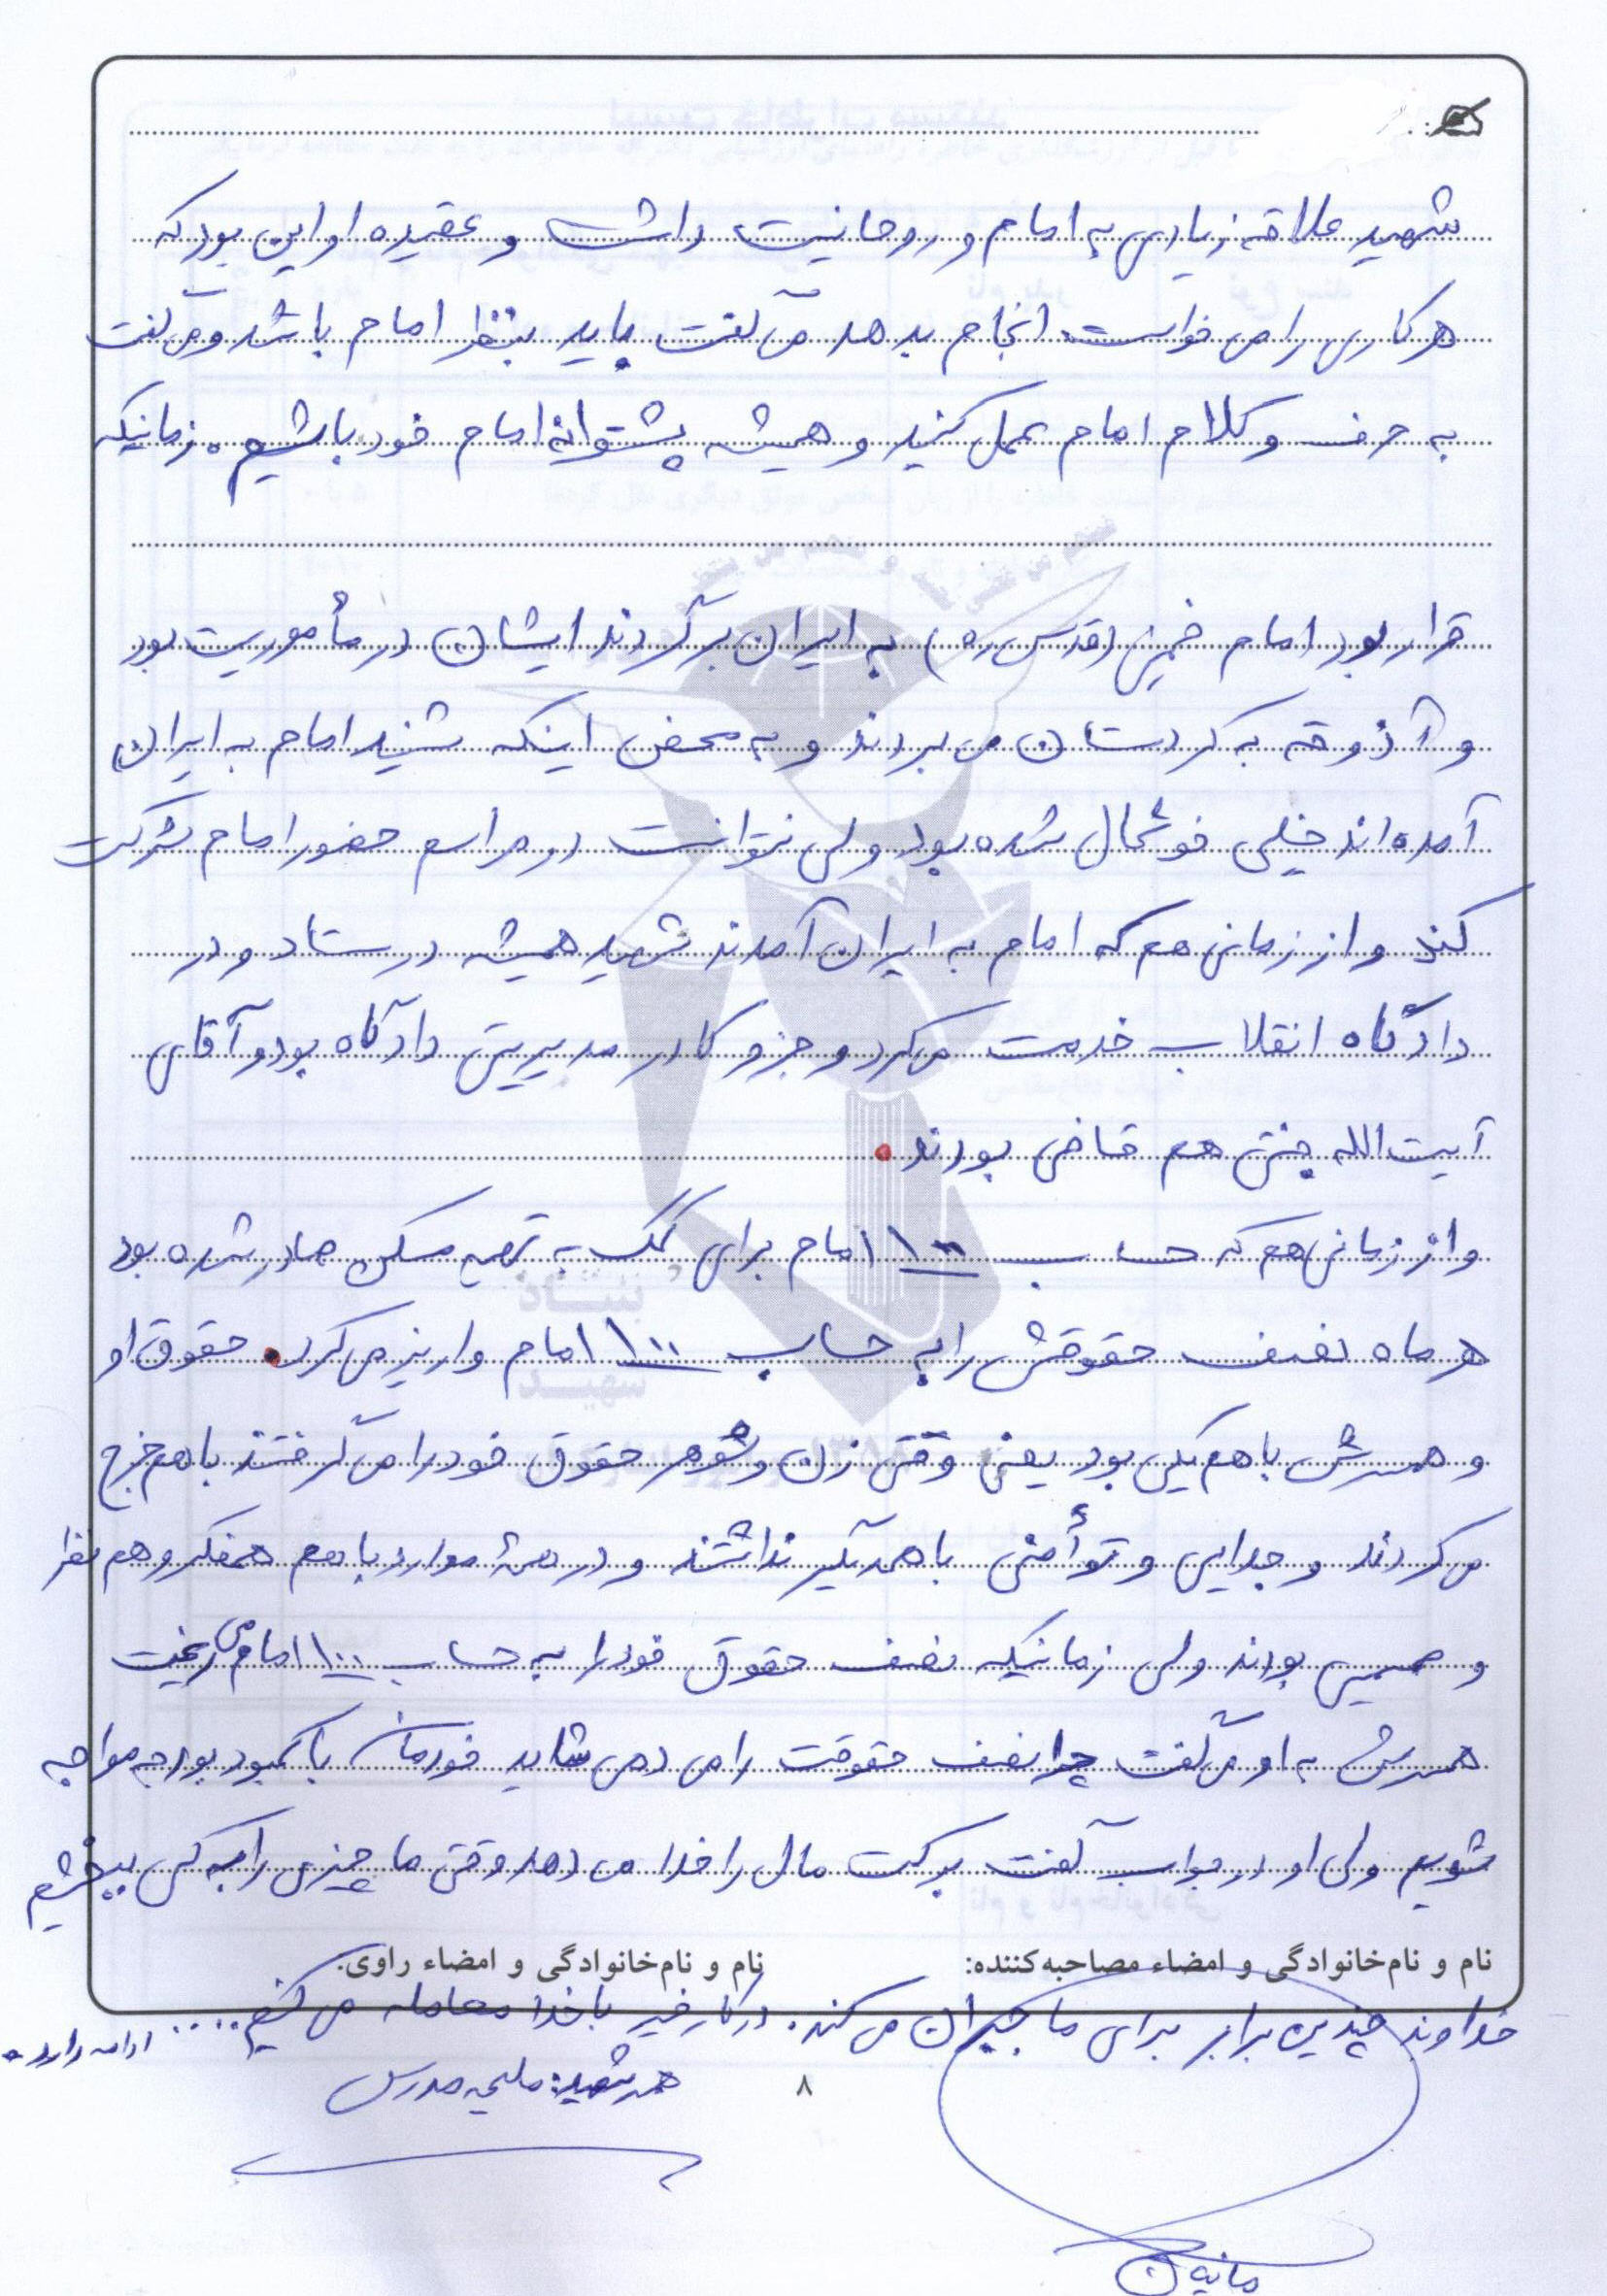 شهید علاقه زیادی به امام و روحانیت داشت و عقیده او این بود که
هر کاری را می خواست انجام بدهد می گفت باید بنظر امام باشد و می گفت
به حرف و کلام امام عمل کنید و همیشه پشتوانه امام خود باشیم. زمانیکه
قرار بود امام خمینی (قدس ره) به ایران برگردند ایشان در مأموریت بود
و آذوقه به کردستان می بردند و به محض اینکه شنید امام به ایران
آمده اند خیلی خوشحال شده بود ولی نتوانست در مراسم حضور امام شرکت
کند و از زمانی هم که امام به ایران آمدند شهید همیشه در ستاد و در
دادگاه انقلاب خدمت می کرد و جزو کادر مدیریتی دادگاه بود و آقای
آیت الله جنتی هم قاضی بودند.
و از زمانی هم که حساب ۱۰۰ امام برای کمک به تهیه مسکن صادر شده بود
هر ماه نصف حقوقش را به حساب ۱۰۰ امام واریز می کرد. حقوق او
و همسرش با هم یکی بود یعنی وقتی زن و شوهر حقوق خود را می گرفتند با هم خرج
می کردند و جدایی و توأمنی با همدیگر نداشتند و در همۀ موارد با هم همفکر و هم نظر
و صمیمی بودند ولی زمانیکه نصف حقوق خود را به حساب ۱۰۰ امام می ریخت
همسرش به او می گفت چرا نصف حقوقت را می دهی شاید خودمان با کمبود بودجه مواجه
شویم ولی او در جواب گفت برکت مال را خدا می دهد وقتی ما چیزی را به کسی ببخشیم
نام و نام‌خانوادگی و امضاء مصاحبه‌کننده: نام و نام‌خانوادگی و امضاء راوی:
خداوند چندین برابر برای ما جبران می کند. در کار خیر با خدا معامله می کنیم.....
ادامه دارد.
همسر شهید: ملیحه مدرس
۸